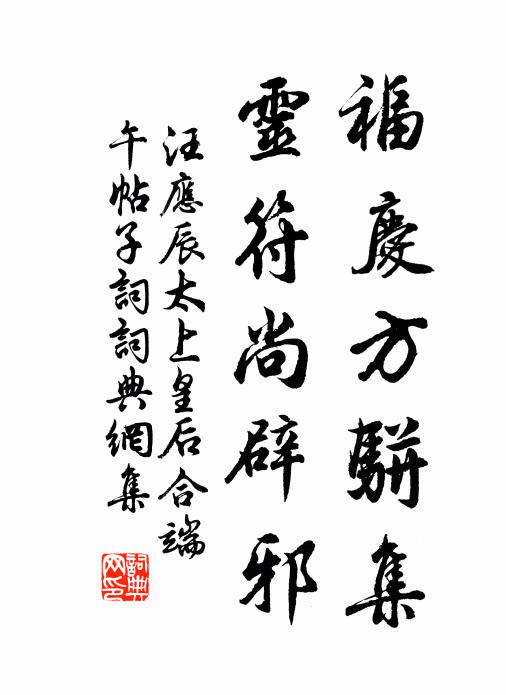 福慶方駢集
靈符尚辟邪
汪應辰太上皇后合端
午帖子詞詞典網集
詞典網印